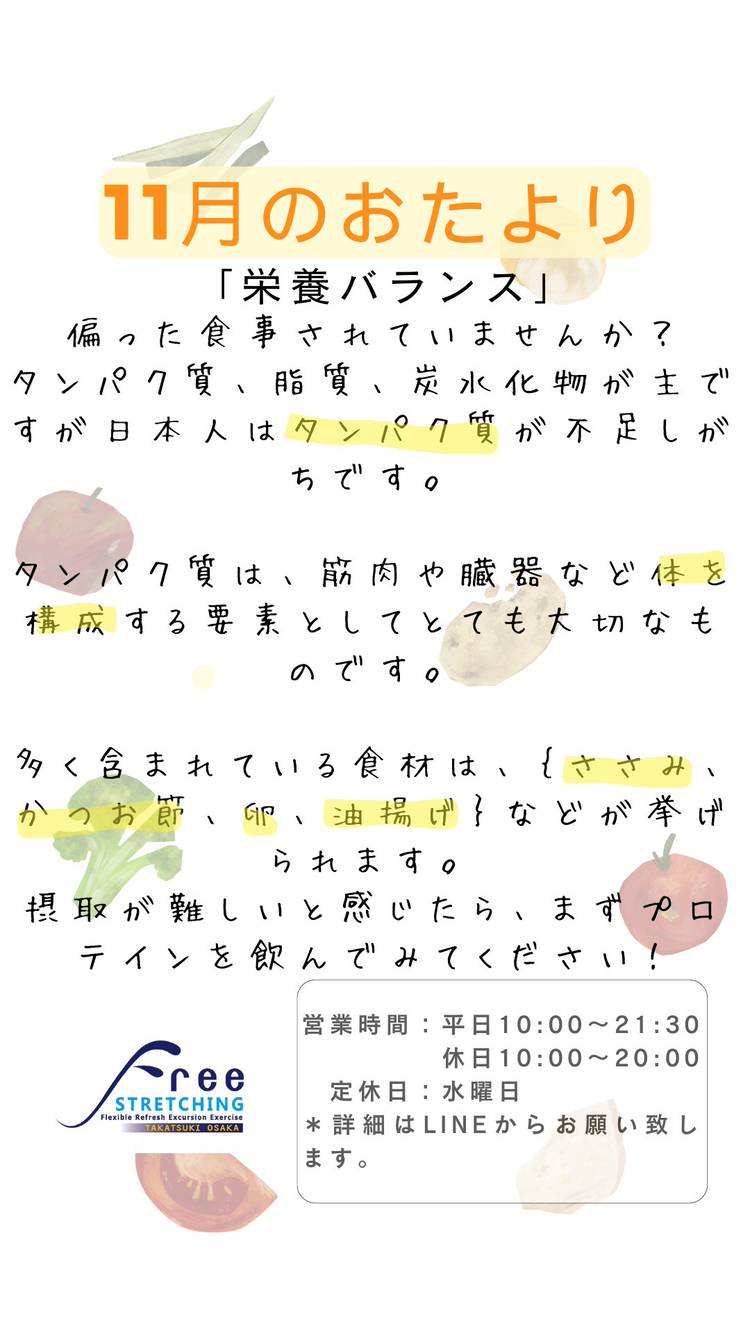 11月のおたより
「栄養バランス」
偏った食事されていませんか？
タンパク質、脂質、炭水化物が主で
すが日本人はタンパク質が不足しが
ちです。
タンパク質は、筋肉や臓器など体を
構成する要素としてとても大切なも
のです。
多く含まれている食材は、{ささみ、
かつお節、卵、油揚げ}などが挙げ
られます。
摂取が難しいと感じたら、まずプロ
テインを飲んでみてください！
営業時間：平日10:00～21:30
休日10:00～20:00
定休日：水曜日
＊詳細はLINEからお願い致し
ます。
Free
STRETCHING
Flexible Refresh Excursion Exercise
TAKATSUKI OSAKA